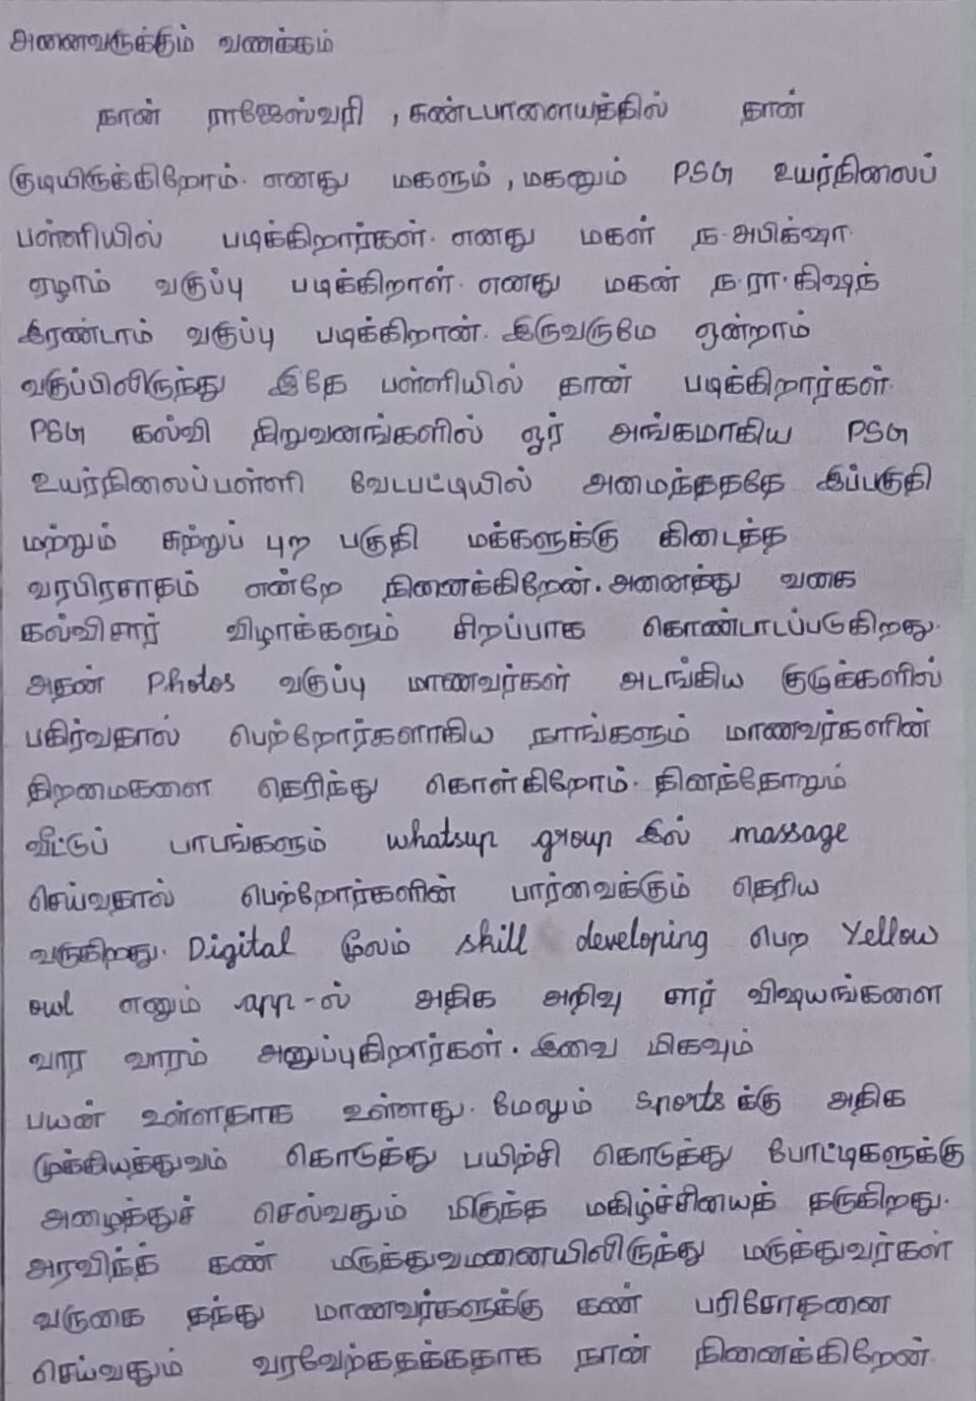 அனைவருக்கும் வணக்கம்
நான் ராஜேஸ்வரி , சுண்டபாளையத்தில் தான்
குடியிருக்கிறோம். எனது மகளும் , மகனும் PSG உயர்நிலைப்
பள்ளியில் படிக்கிறார்கள். எனது மகள் ந.அபிக்ஷா.
ஏழாம் வகுப்பு படிக்கிறாள். எனது மகன் ந.ரா.கிஷந்
இரண்டாம் வகுப்பு படிக்கிறான். இருவருமே ஒன்றாம்
வகுப்பிலிருந்து இதே பள்ளியில் தான் படிக்கிறார்கள்.
PSG கல்வி நிறுவனங்களில் ஓர் அங்கமாகிய PSG
உயர்நிலைப்பள்ளி வேடபட்டியில் அமைந்தததே இப்பகுதி
மற்றும் சுற்றுப் புற பகுதி மக்களுக்கு கிடைத்த
வரபிரசாதம் என்றே நினைக்கிறேன். அனைத்து வகை
கல்விசார் விழாக்களும் சிறப்பாக கொண்டாடப்படுகிறது.
அதன் Photos வகுப்பு மாணவர்கள் அடங்கிய குடுக்களில்
பகிர்வதால் பெற்றோர்களாகிய நாங்களும் மாணவர்களின்
திறமைகளை தெரிந்து கொள்கிறோம். தினந்தோறும்
வீட்டுப் பாடங்களும் whatsup group இல் massage
செய்வதால் பெற்றோர்களின் பார்வைக்கும் தெரிய
வருகிறது. Digital மூலம் skill developing பெற Yellow
owl எனும் app-ல் அதிக அறிவு சார் விஷயங்களை
வார வாரம் அனுப்புகிறார்கள். இவை மிகவும்
பயன் உள்ளதாக உள்ளது. மேலும் sports க்கு அதிக
முக்கியத்துவம் கொடுத்து பயிற்சி கொடுத்து போட்டிகளுக்கு
அழைத்துச் செல்வதும் மிகுந்த மகிழ்ச்சினயத் தருகிறது.
அரவிந்த் கண் மருத்துவமனையிலிருந்து மருத்துவர்கள்
வருகை தந்து மாணவர்களுக்கு கண் பரிசோதனை
செய்வதும் வரவேற்கதக்கதாக நான் நினைக்கிறேன்.